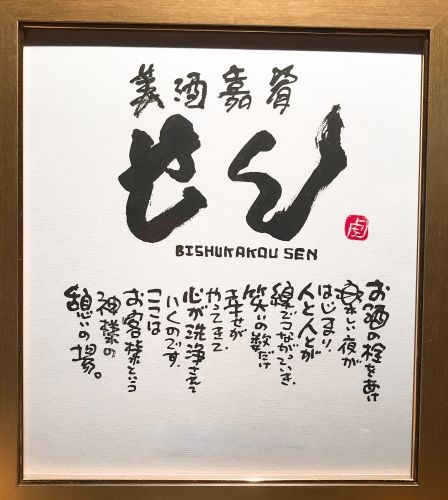 美酒嘉肴
せん
BISHUKAKOU SEN
お酒の栓をあけ
楽しい夜が
はじまり、
人と人とが
線でつながっていき、
笑いの数だけ
幸せが
やってきて
心が洗浄されて
いくのです。
ここは
お客様という
神様の
憩いの場。